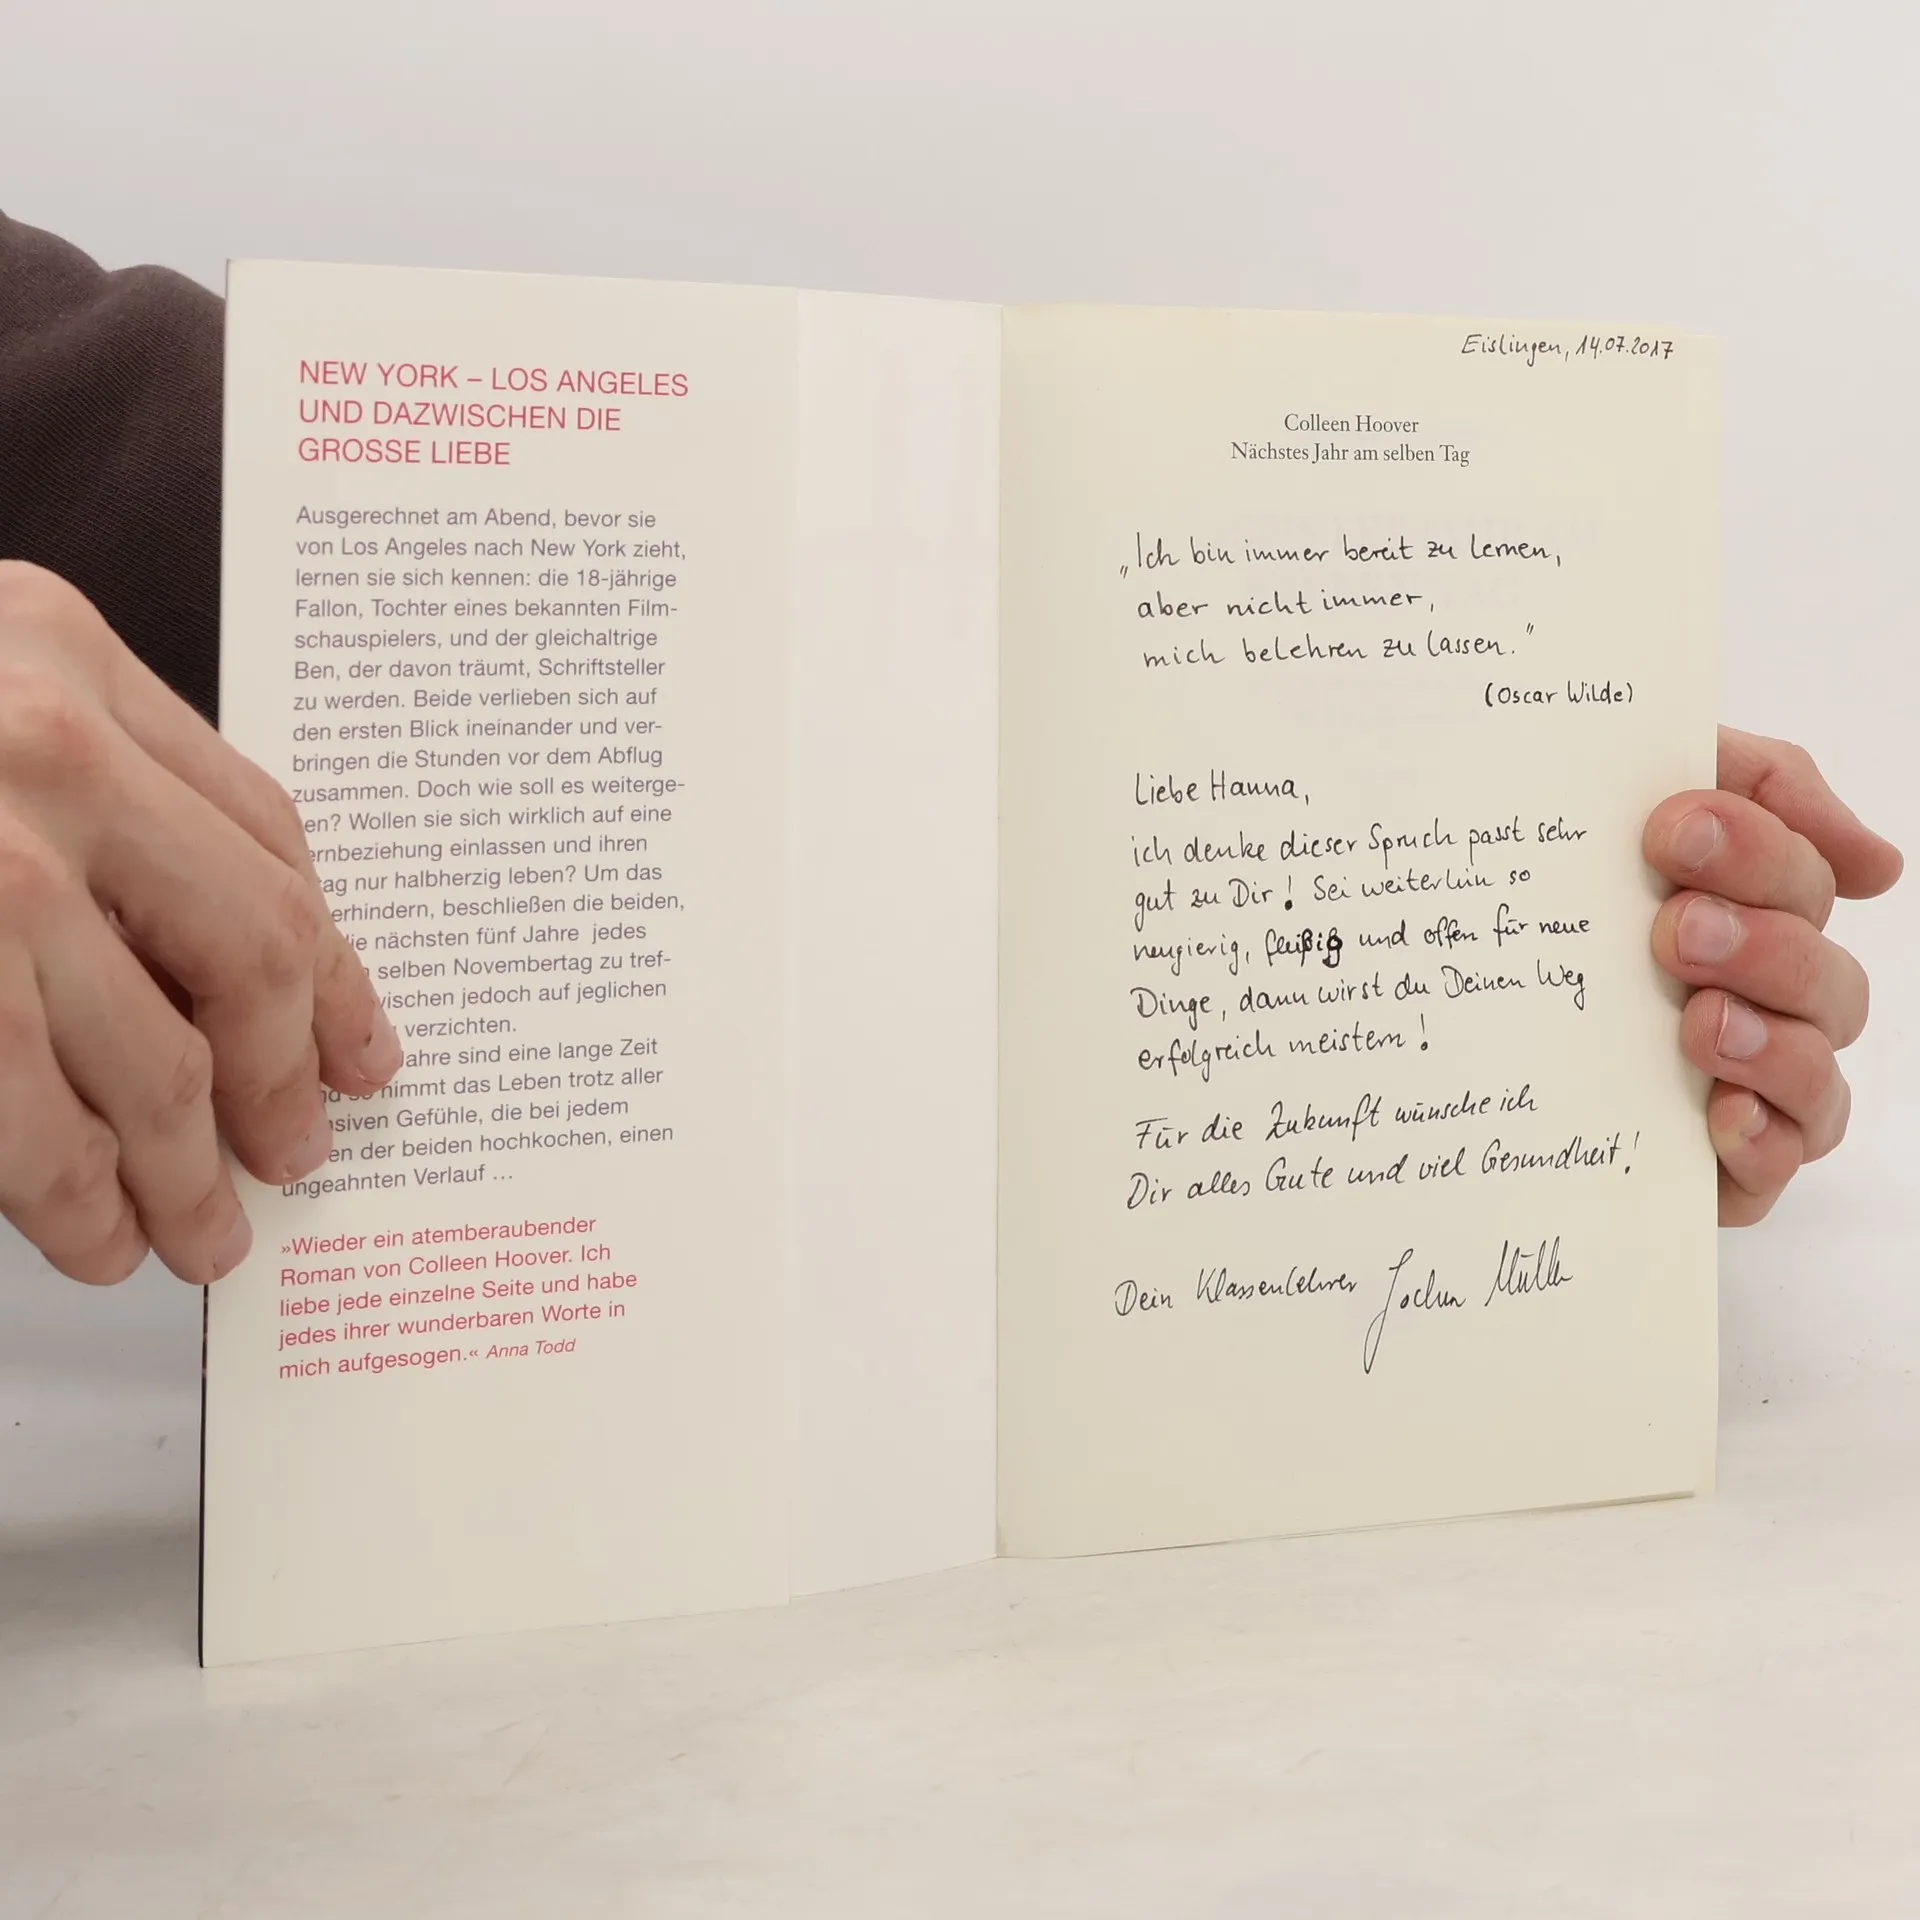 NEW YORK – LOS ANGELES
UND DAZWISCHEN DIE
GROSSE LIEBE
Ausgerechnet am Abend, bevor sie
von Los Angeles nach New York zieht,
lernen sie sich kennen: die 18-jährige
Fallon, Tochter eines bekannten Film-
schauspielers, und der gleichaltrige
Ben, der davon träumt, Schriftsteller
zu werden. Beide verlieben sich auf
den ersten Blick ineinander und ver-
bringen die Stunden vor dem Abflug
zusammen. Doch wie soll es weiterge-
en? Wollen sie sich wirklich auf eine
ernbeziehung einlassen und ihren
ag nur halbherzig leben? Um das
erhindern, beschließen die beiden,
ie nächsten fünf Jahre jedes
selben Novembertag zu tref-
ischen jedoch auf jeglichen
verzichten.
Jahre sind eine lange Zeit
nimmt das Leben trotz aller
nsiven Gefühle, die bei jedem
en der beiden hochkochen, einen
ungeahnten Verlauf ...
»Wieder ein atemberaubender
Roman von Colleen Hoover. Ich
liebe jede einzelne Seite und habe
jedes ihrer wunderbaren Worte in
mich aufgesogen.« Anna Todd
Eislingen, 14.07.2017
Colleen Hoover
Nächstes Jahr am selben Tag
„Ich bin immer bereit zu lernen,
aber nicht immer,
mich belehren zu lassen."
(Oscar Wilde)
Liebe Hanna,
ich denke dieser Spruch passt sehr
gut zu Dir! Sei weiterhin so
neugierig, fleißig und offen für neue
Dinge, dann wirst du Deinen Weg
erfolgreich meistern!
Für die Zukunft wünsche ich
Dir alles Gute und viel Gesundheit!
Dein Klassenlehrer Jochen Müller